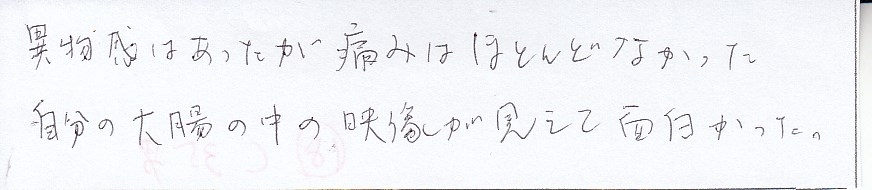 異物感はあったが痛みはほとんどなかった
自分の大腸の中の映像が見えて面白かった。